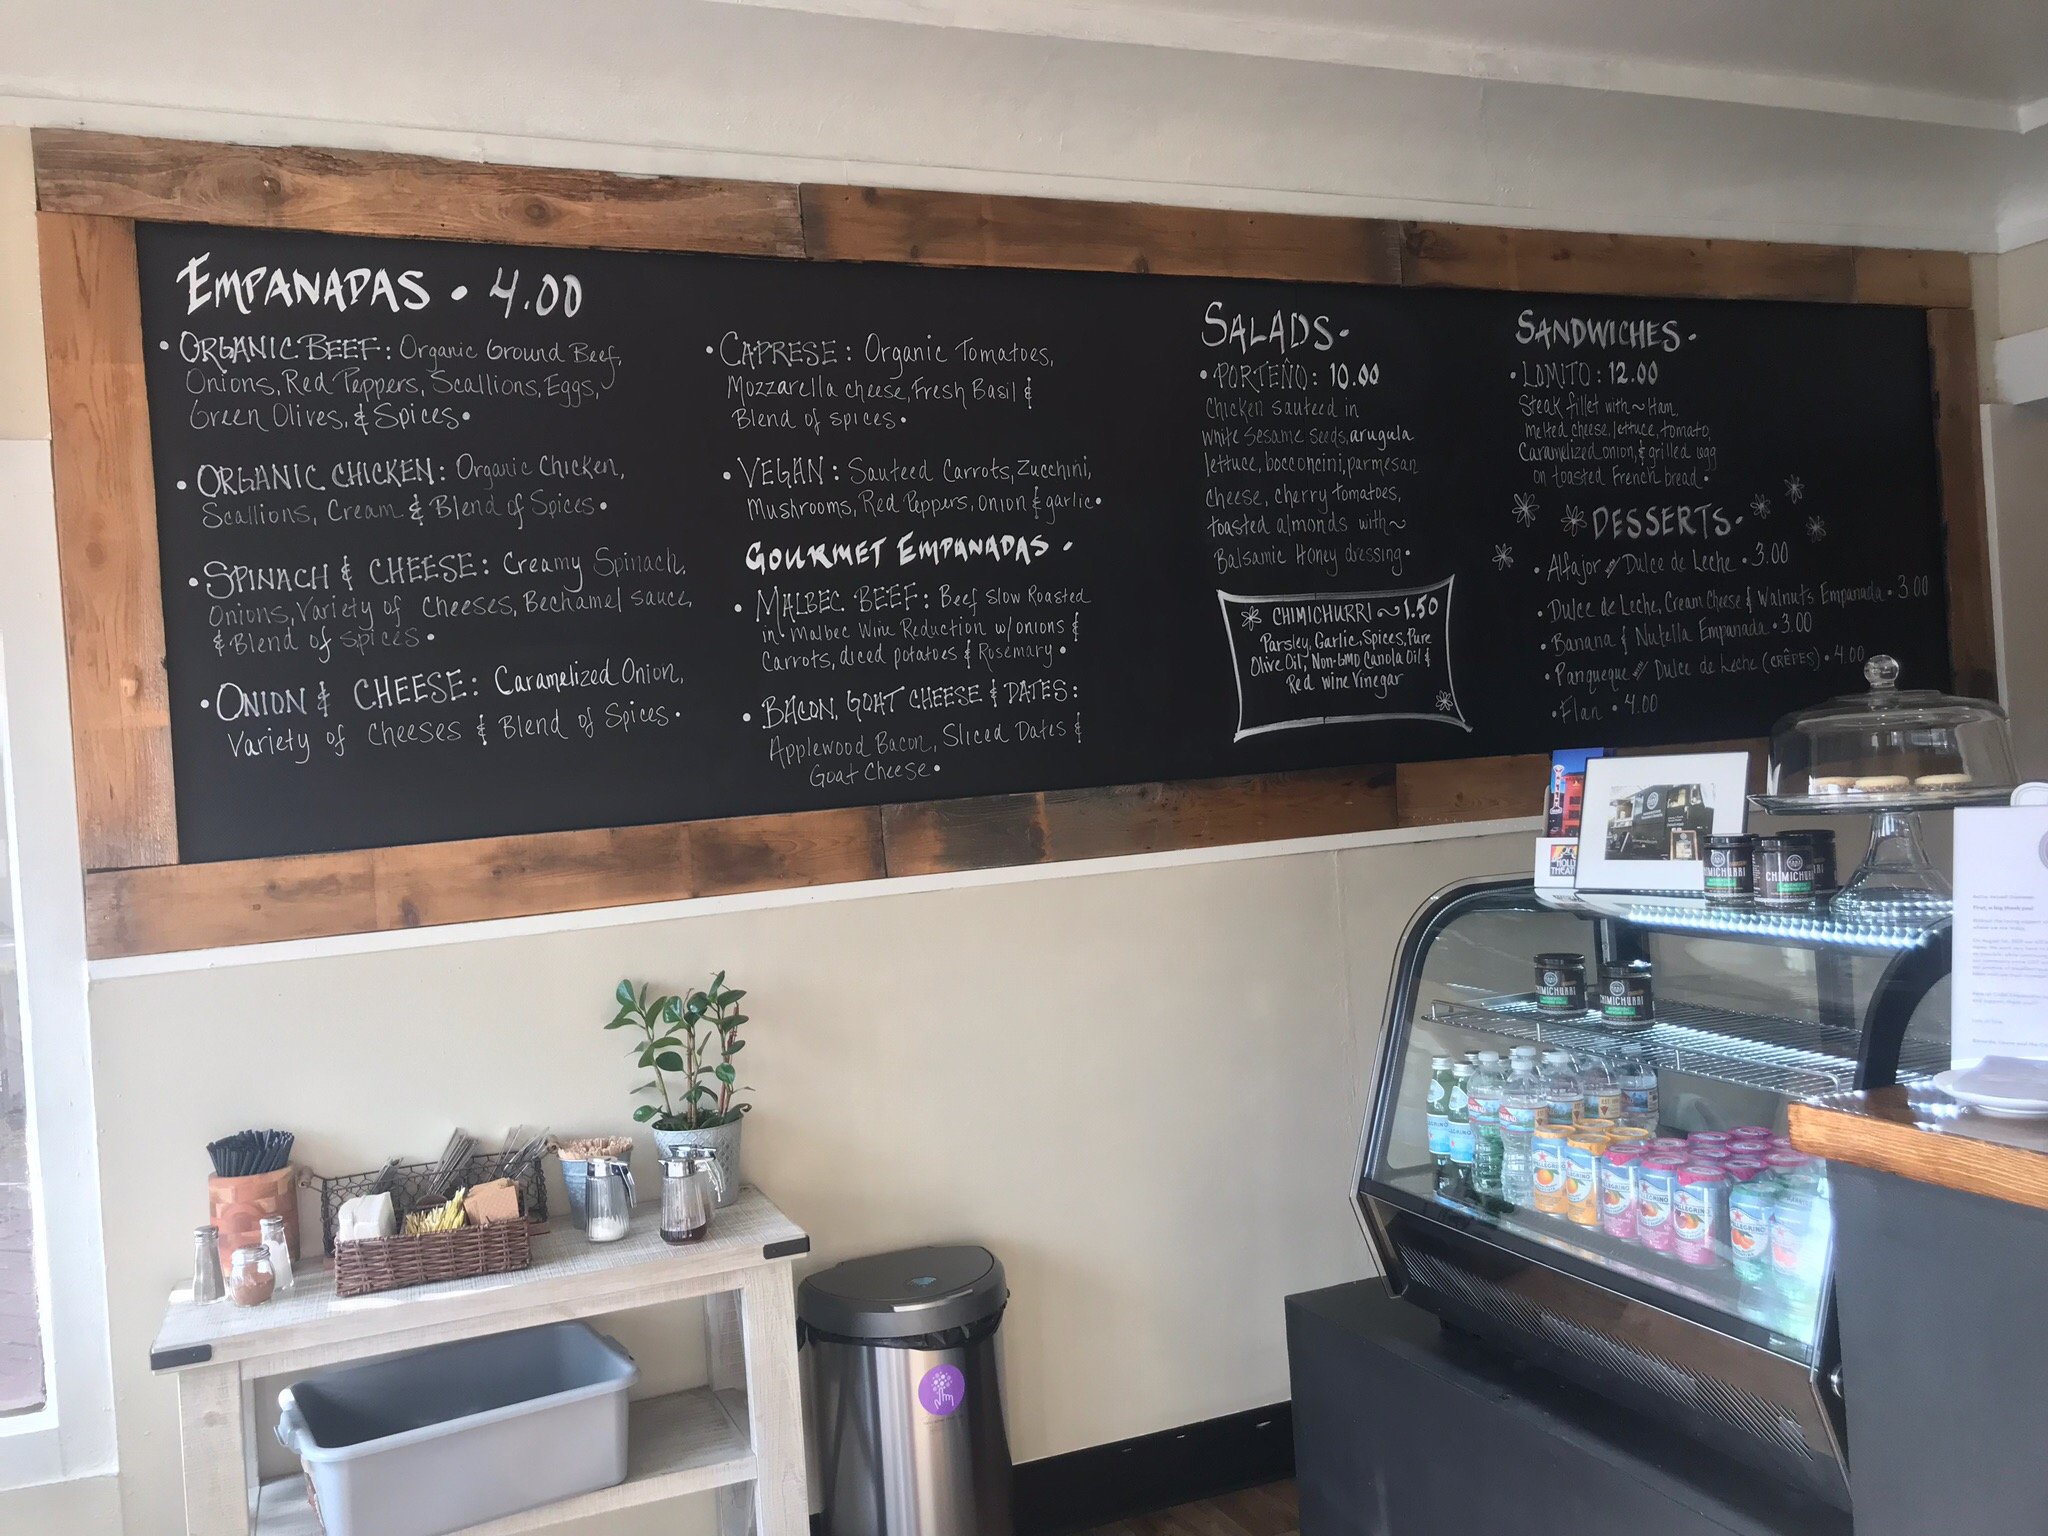 EMPANADAS • 4.00
• ORGANIC BEEF: Organic Ground Beef,
Onions, Red Peppers, Scallions, Eggs,
Green Olives, & Spices •
• ORGANIC CHICKEN: Organic Chicken,
Scallions, Cream & Blend of Spices •
• SPINACH & CHEESE: Creamy Spinach,
Onions, Variety of Cheeses, Bechamel sauce,
& Blend of spices •
• ONION & CHEESE: Caramelized Onion,
Variety of Cheeses & Blend of Spices •
• CAPRESE: Organic Tomatoes,
Mozzarella cheese, Fresh Basil &
Blend of spices •
• VEGAN: Sauteed Carrots, Zucchini,
Mushrooms, Red Peppers, Onion & garlic •
GOURMET EMPANADAS •
• MALBEC BEEF: Beef Slow Roasted
in Malbec Wine Reduction w/onions &
Carrots, diced potatoes & Rosemary •
• BACON, GOAT CHEESE & DATES:
Applewood Bacon, Sliced Dates &
Goat Cheese •
SALADS •
• PORTEÑO: 10.00
Chicken sauteed in
white sesame seeds, arugula
lettuce, bocconcini, parmesan
cheese, cherry tomatoes,
toasted almonds with~
Balsamic Honey dressing •
CHIMICHURRI ~ 1.50
Parsley, Garlic, Spices, Pure
Olive Oil, Non-GMO Canola Oil &
Red wine Vinegar
SANDWICHES •
• LOMITO: 12.00
Steak fillet with ~ Ham,
melted cheese, lettuce, tomato,
Caramelized onion, & grilled egg
on toasted French bread •
DESSERTS •
• Alfajor Dulce de Leche • 3.00
• Dulce de Leche, Cream Cheese & Walnuts Empanada • 3.00
• Banana & Nutella Empanada • 3.00
• Panqueque Dulce de Leche (CRÊPES) • 4.00
• Flan • 4.00
CHIMICHURRI
CHIMICHURRI
CHIMICHURRI